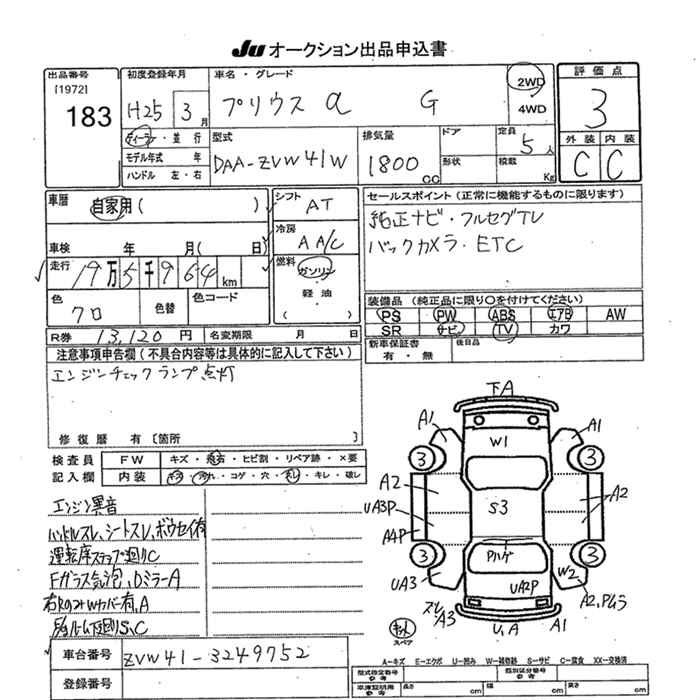 JU オークション出品申込書
出品番号
[1972]
183
初度登録年月
H25 3月
車名・グレード
プリウス α G
2WD
4WD
評価点
3
外装 内装
C C
ディーラー・並行
モデル年式 年
ハンドル 左・右
型式
DAA-ZVW41W
排気量
1800 CC
ドア
形状
定員
5人
積載
Kg
車歴
自家用( )
シフト
AT
冷房
AA/C
車検 年 月( 日)
走行
19万5千964km
燃料
ガソリン
軽油
( )
色
クロ
色替
色コード
R券 13,120円
名変期限 月 日
セールスポイント(正常に機能するものに限ります)
純正ナビ・フルセグTV
バックカメラ・ETC
装備品(純正品に限り〇を付けてください)
PS PW ABS エアB AW
SR ナビ TV カワ
新車保証書
有・無
後日品
注意事項申告欄(不具合内容等は具体的に記入して下さい)
エンジンチェックランプ点灯
修復歴 有〔箇所 〕
検査員
記入欄
FW キズ・飛石・ヒビ割・リペア跡・×要
内装 キズ・汚れ・コゲ・穴・スレ・キレ・破レ
エンジン異音
ハンドルスレ、シートスレ、ボウセイ有
運転席ステップ廻りC
Fガラス気泡、DミラーA
S、C
車台番号 ZVW41-3249752
登録番号
下A
A1
A1
W1
3
3
A2
S3
A2
UA3P
A4P
Pハゲ
3
3
UA3
UA2P
W2
A2,Pムラ
スレ
A3
U,A
A1
スペア
A―キズ E―エクボ U―凹み W―補修跡 S―サビ C―腐食 XX―交換済
型式指定番号
参考
類別区分番号
参考
車庫証明用
参考
長さ cm
幅 cm
高さ cm